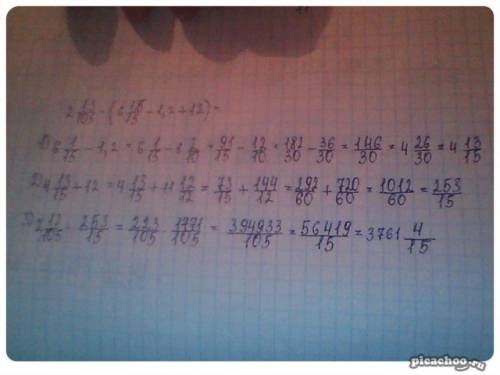 2 13/105 · (6 1/15 − 1,2 + 12) =
1) 6 1/15 − 1,2 = 6 1/15 − 1 2/10 = 91/15 − 12/10 = 182/30 − 36/30 = 146/30 = 4 26/30 = 4 13/15
2) 4 13/15 + 12 = 4 13/15 + 11 12/12 = 73/15 + 144/12 = 292/60 + 720/60 = 1012/60 = 253/15
3) 2 13/105 · 253/15 = 223/105 · 1771/105 = 394933/105 = 56419/15 = 3761 4/15
picachoo.ru